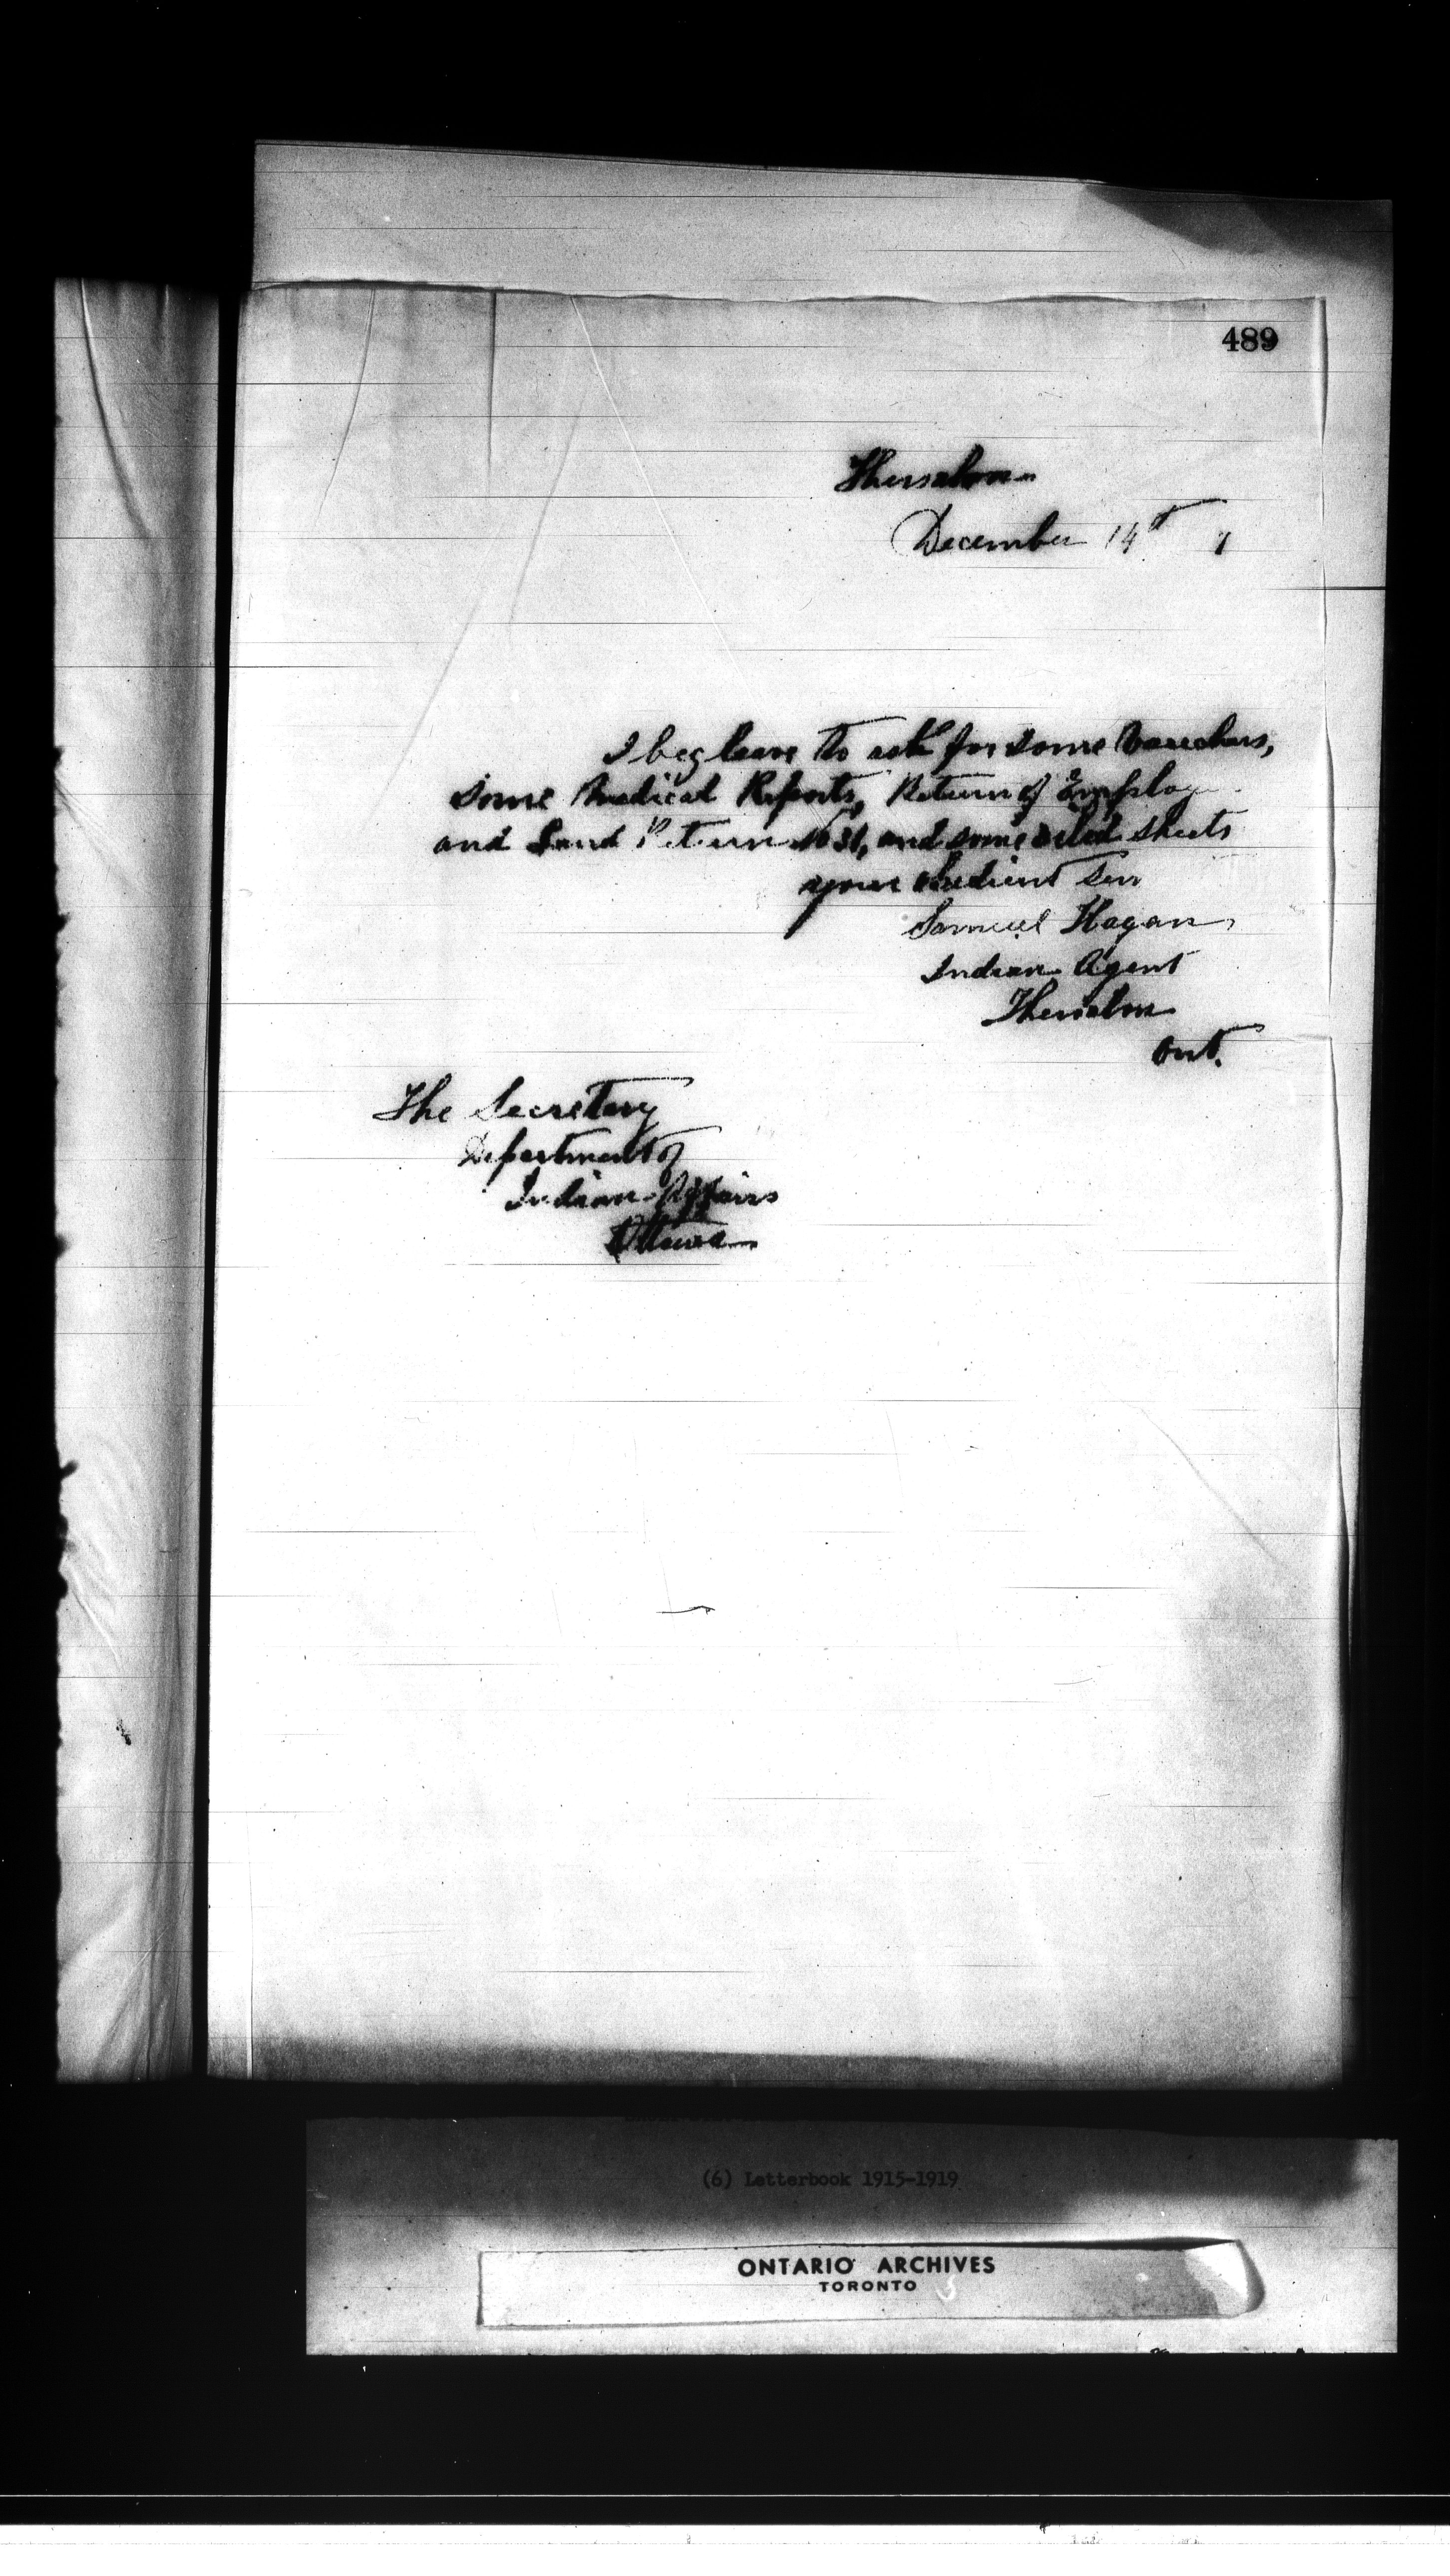 489
Thessalon
December 14th 7
I beg leave to ask for some Vouchers,
some Medical Reports, Return of Employ
and Land Return No 31, and some sheets
your obedient Serv
Samuel Hagan
Indian Agent
Thessalon
Ont.
The Secretary
Department of
Indian Affairs
Ottawa
(6) Letterbook 1915-1919
ONTARIO ARCHIVES
TORONTO